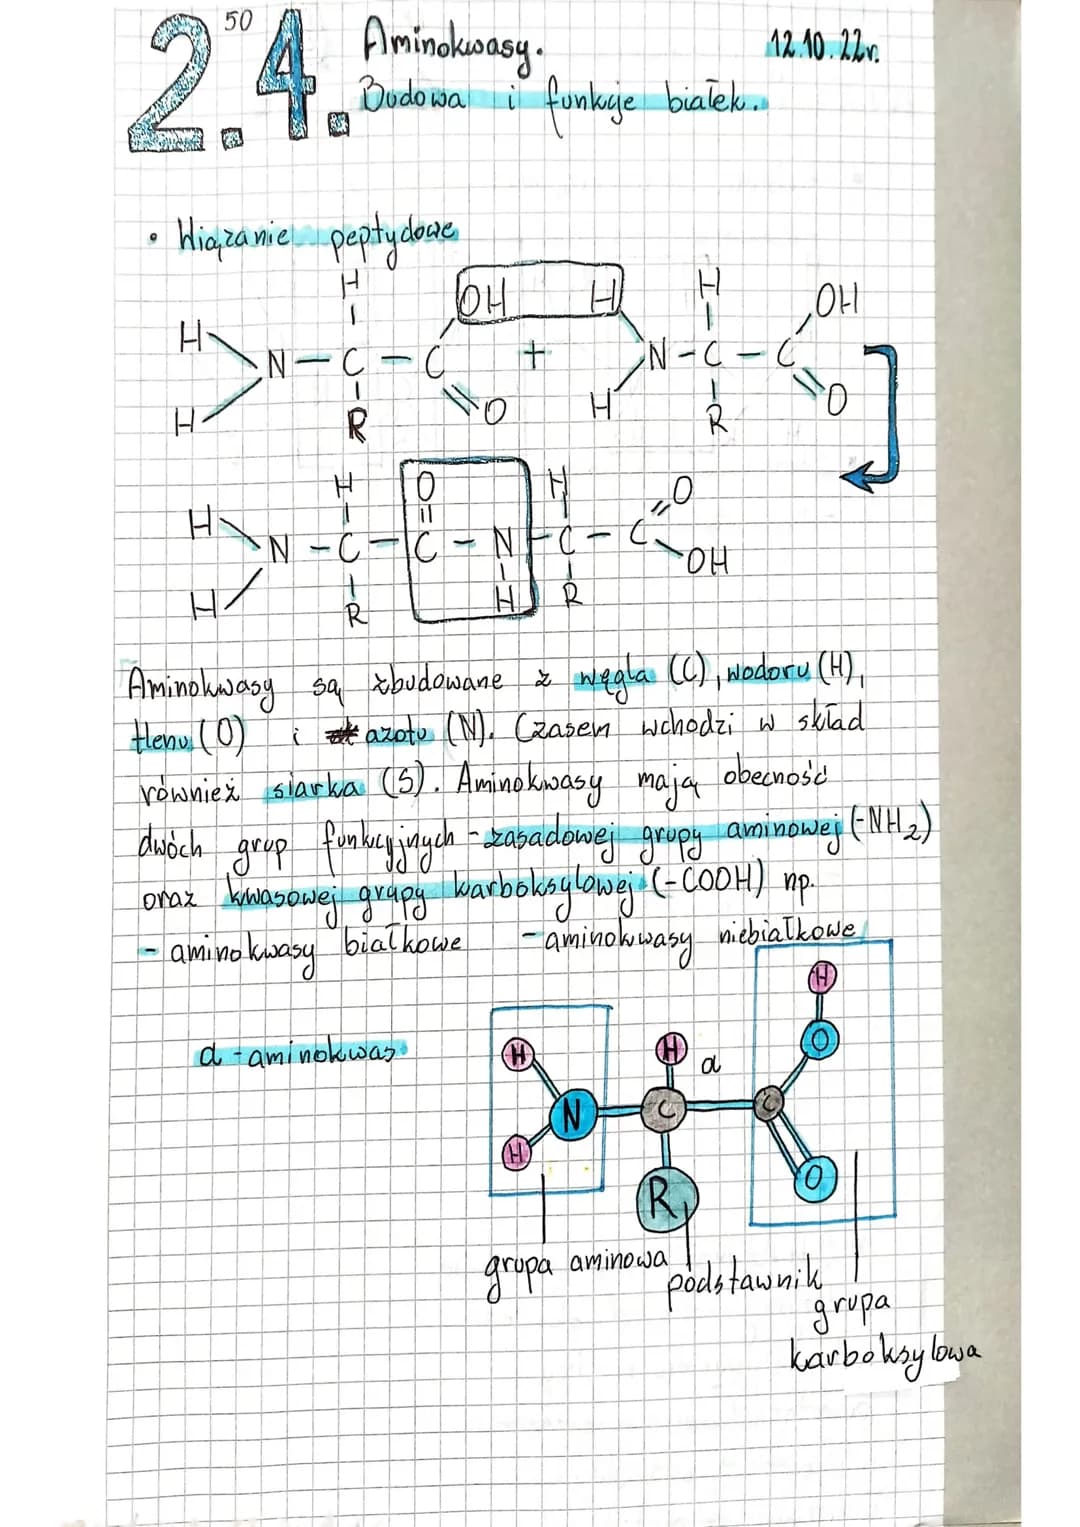 50
2.4. Aminokwasy.
12.10.22r.
Budowa i funkcje białek.
• Wiązanie peptydowe
H OH H H OH
H N - C - C + N - C - C
H R O H R O
H O H O
H N - C - C - N - C - C
OH
H R H R
Aminokwasy są zbudowane z węgla (C), wodoru (H),
tlenu (O) i azotu (N). Czasem wchodzi w skład
również siarka (S). Aminokwasy mają obecność
dwóch grup funkcyjnych - zasadowej grupy aminowej (-NH2)
oraz kwasowej grupy karboksylowej (-COOH) np.
- aminokwasy białkowe - aminokwasy niebiałkowe
H
α - aminokwas H H α O
N C C
H R O
grupa aminowa
podstawnik
grupa
karboksylowa